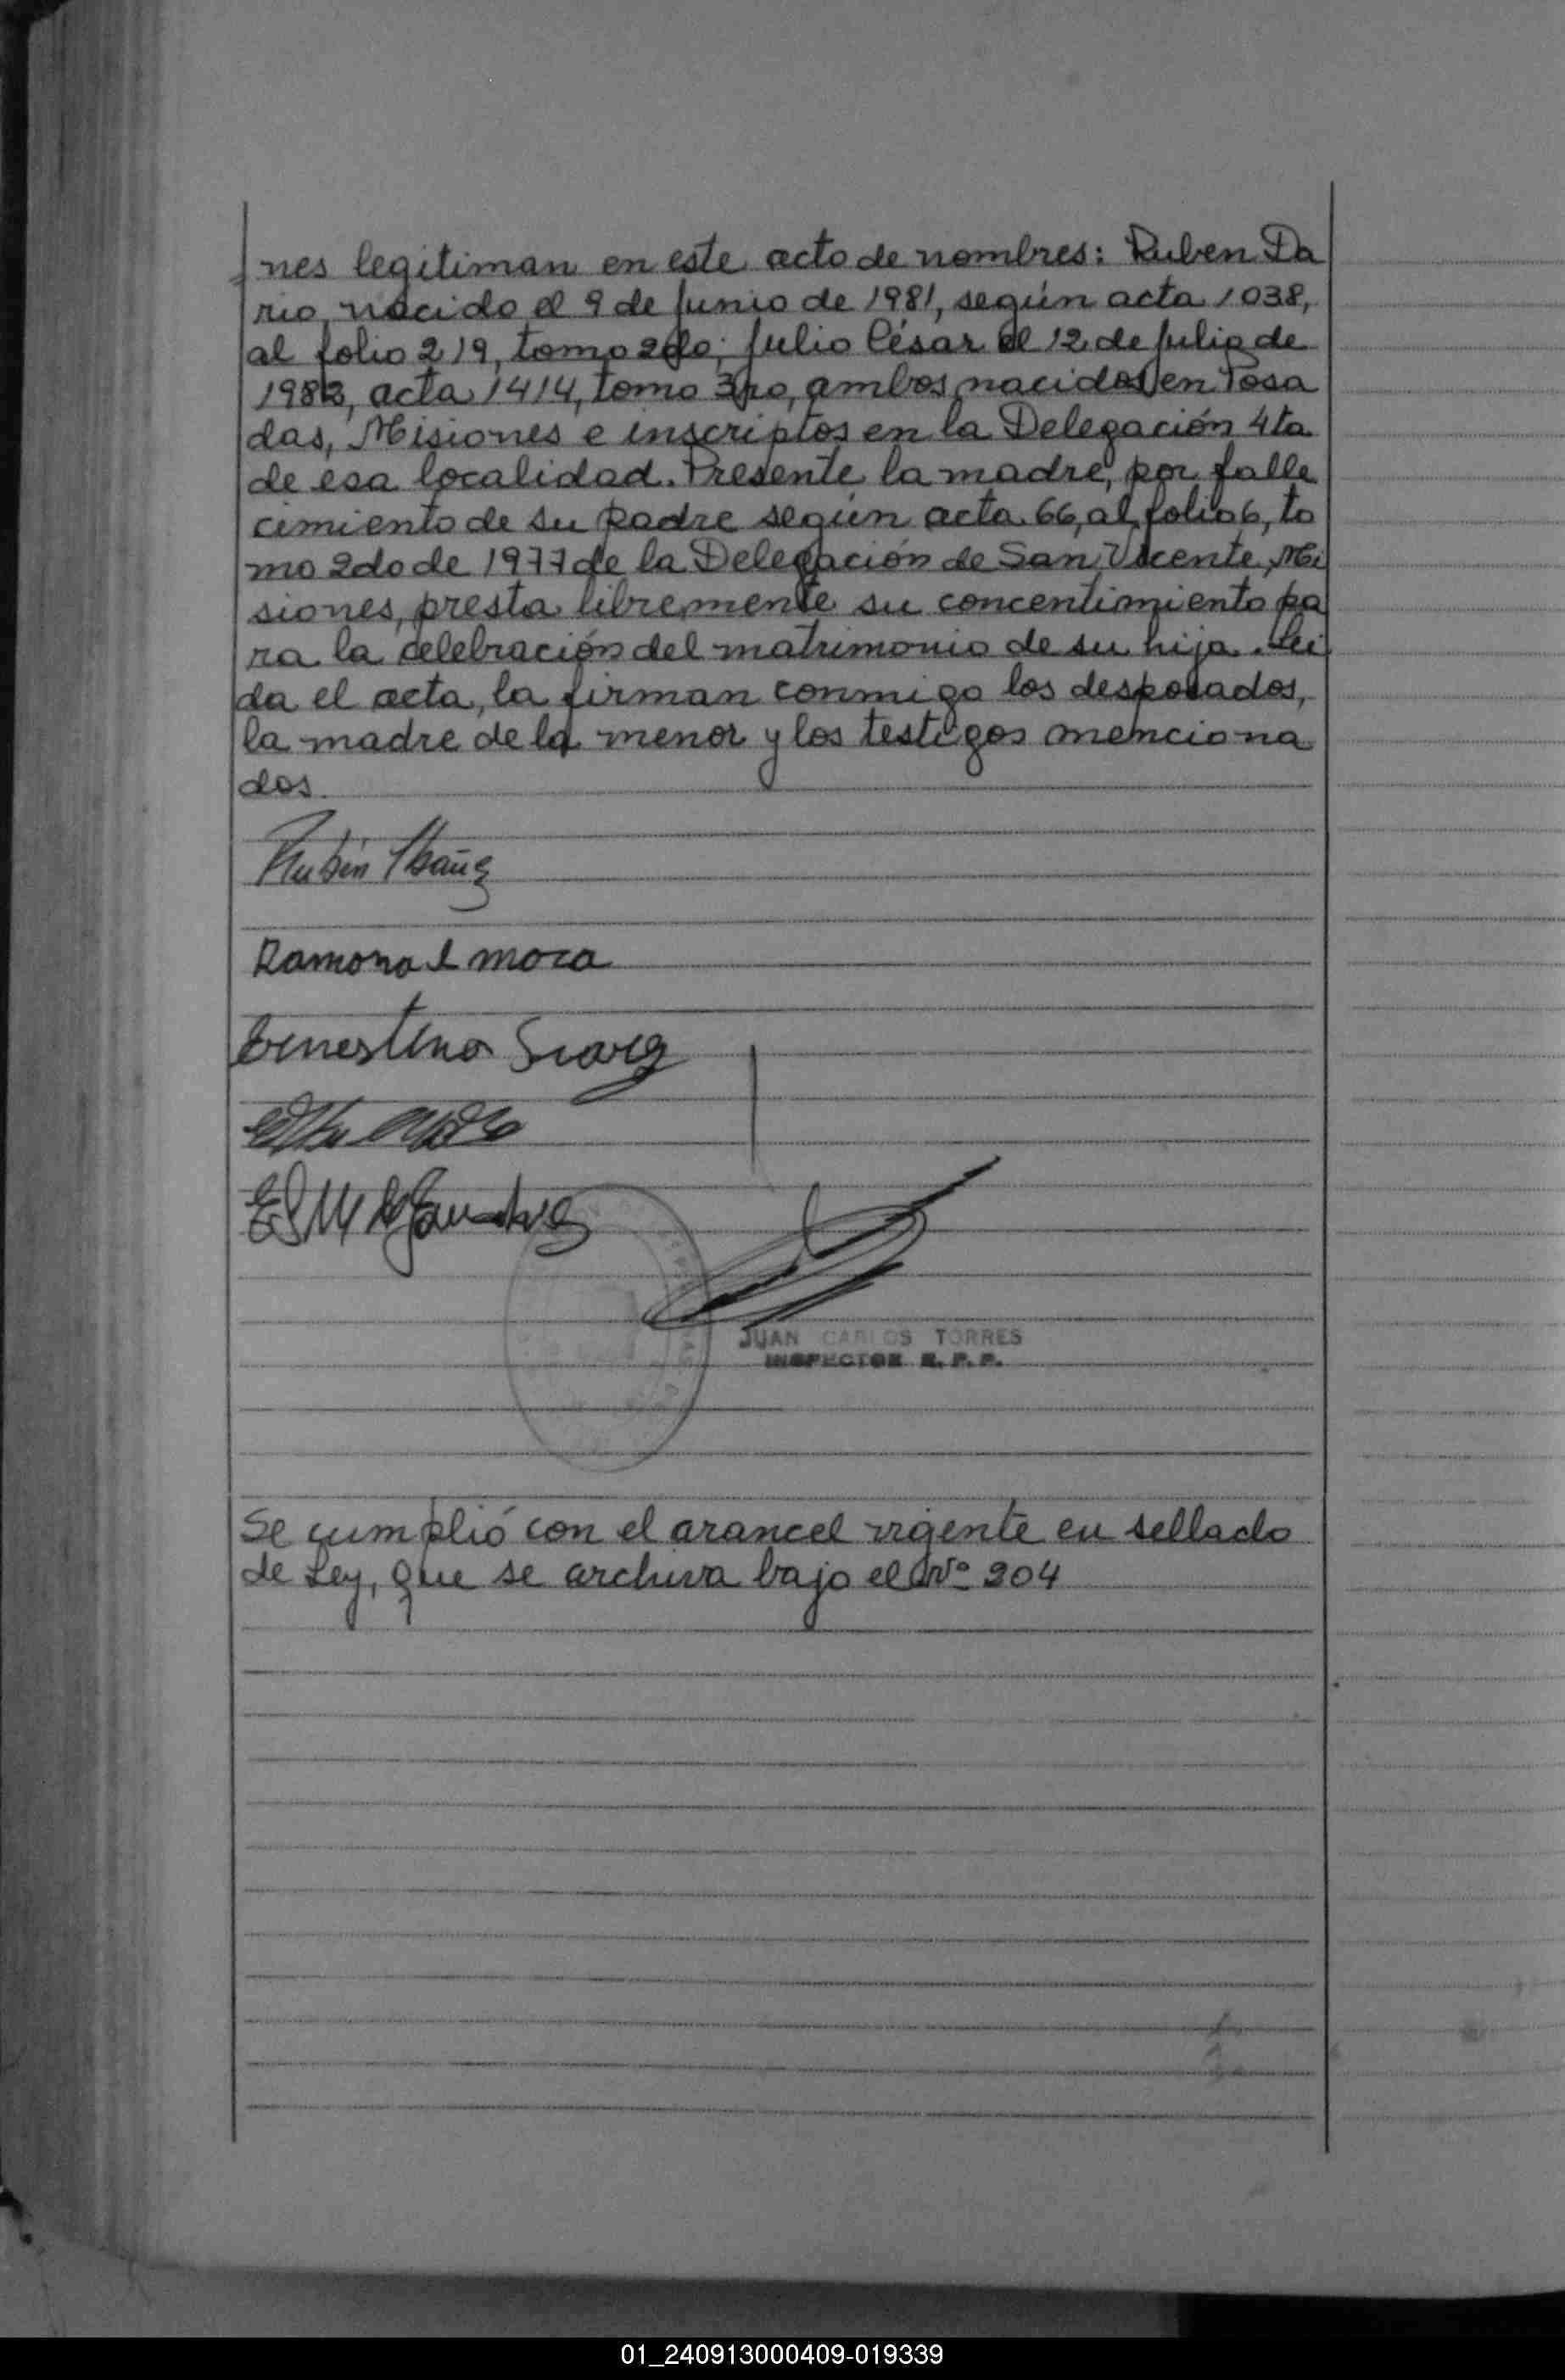 nes legitiman en este acto de nombres: Ruben Da
rio, nacido el 9 de Junio de 1981, según acta 1038,
al folio 219, tomo 2do; Julio César el 12 de Julio de
1983, acta 1414, tomo 3ro, ambos nacidos en Posa
das, Misiones e inscriptos en la Delegación 4ta
de esa localidad. Presente la madre, por falle
cimiento de su padre según acta 66, al folio 6, to
mo 2do de 1977 de la Delegación de San Vicente, Mi
siones, presta libremente su concentimiento pa
ra la celebración del matrimonio de su hija. Lei
da el acta, la firman conmigo los desposados,
la madre de la menor y los testigos menciona
dos.
Rubén Ibañez
Ramona I mora
Ernestina Suarez
JUAN CARLOS TORRES
INSPECTOR R. P. P.
Se cumplió con el arancel vigente en sellado
de Ley, que se archiva bajo el Nº 204
01_240913000409-019339